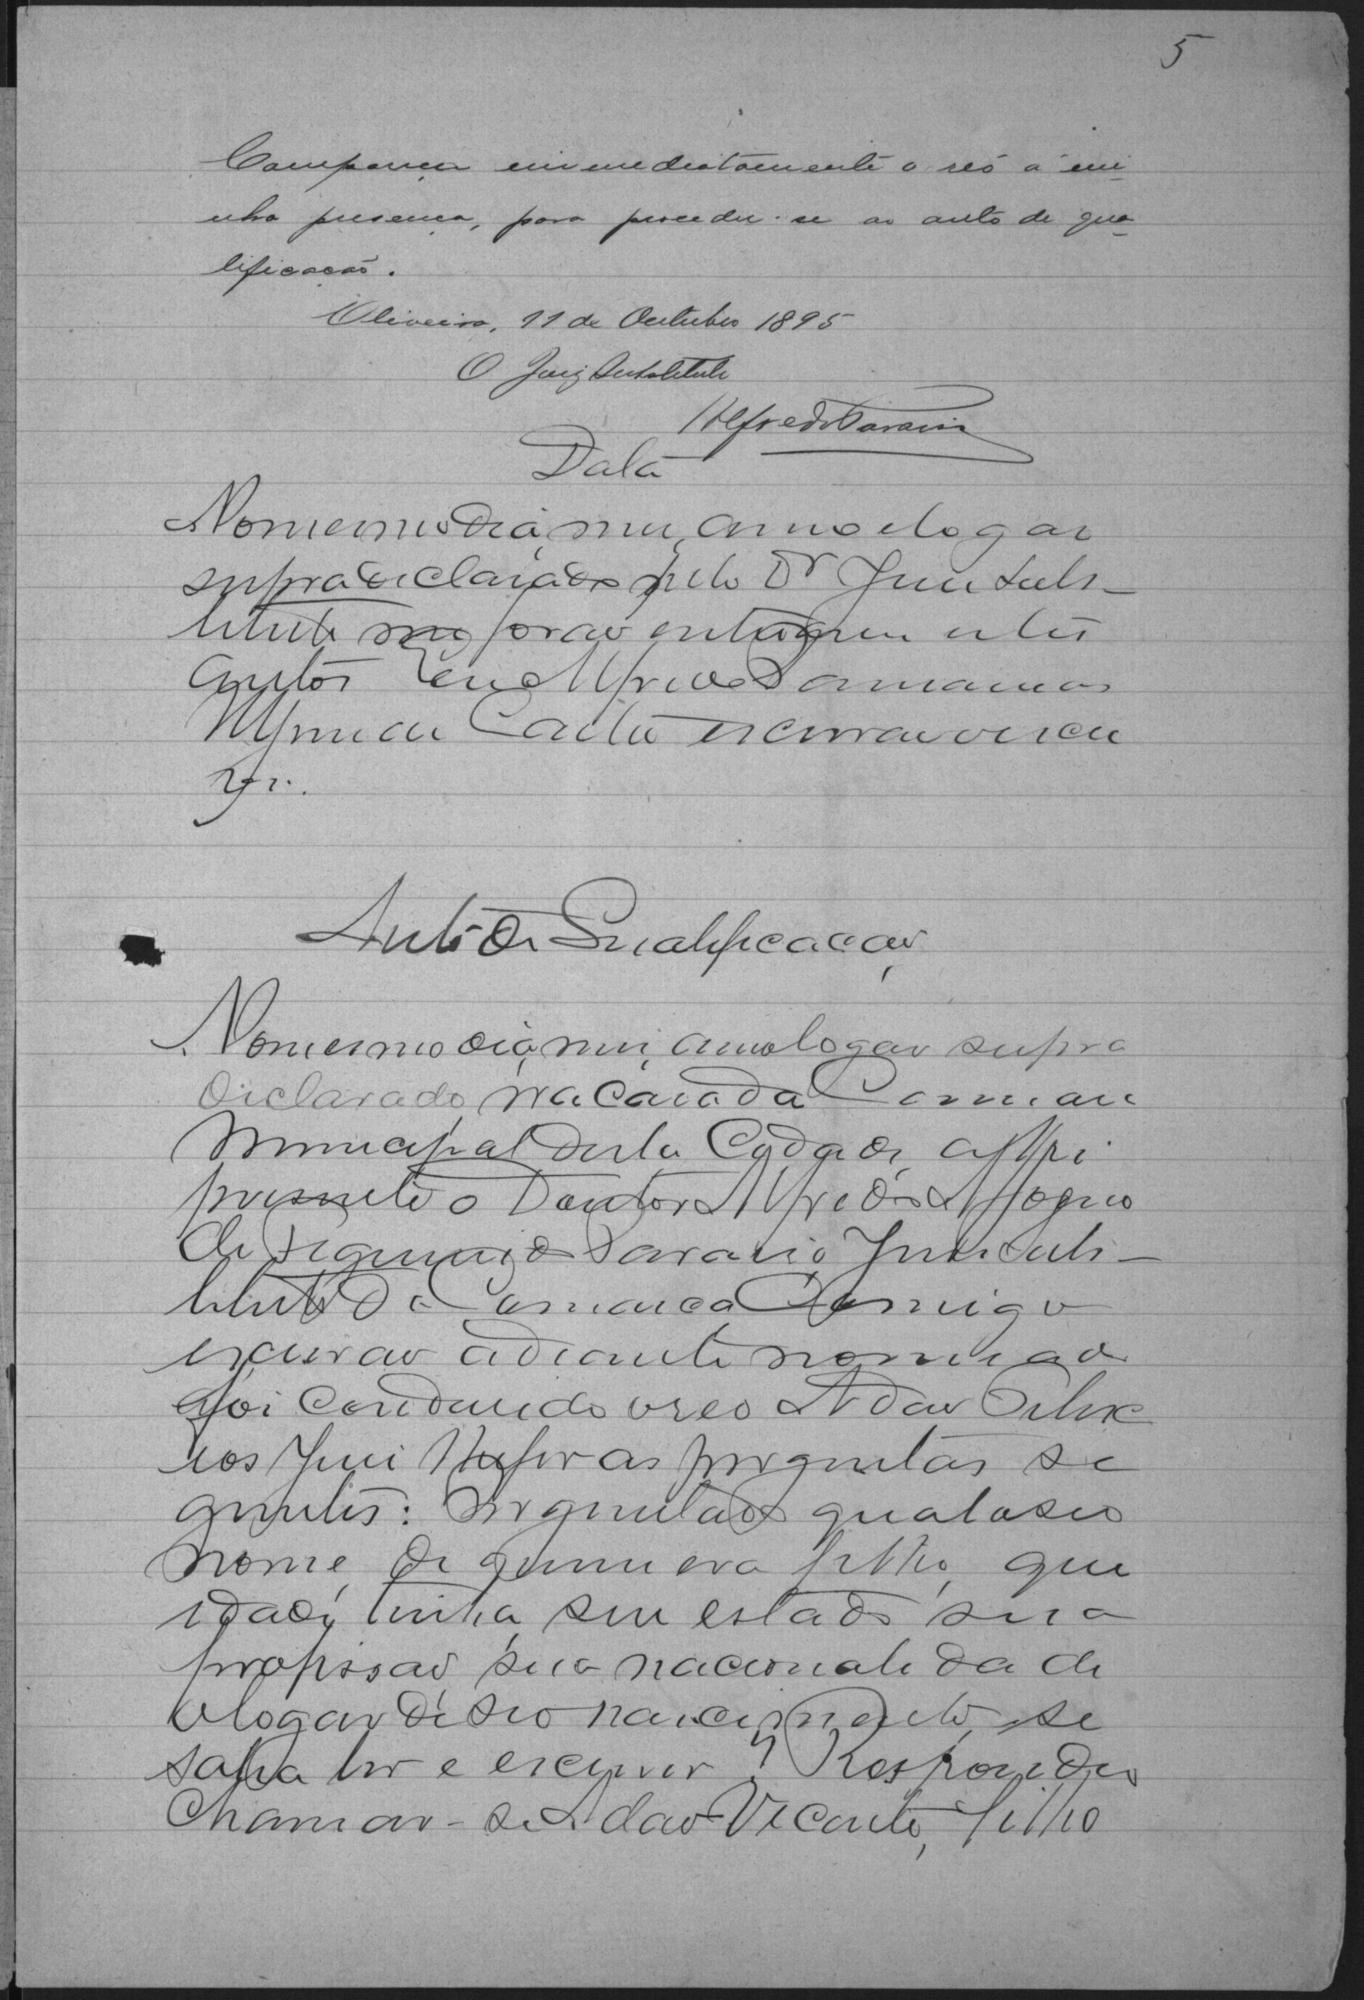 5
Compareça immediatamente o reo á mi-
nha presença, para proceder-se ao auto de qua-
lificação.
Oliveira, 11 de Outubro 1895
O Juiz Substituto
Alfredo Paraiso
Data
No mesmo dia, mez, anno e logar
supra declarado pelo Dr Juiz Subs-
tituto me forão entregues estes
autos Eu Alfredo
escrivão o escre
vi.
Auto de Qualificação
No mesmo dia, mez, anno logar supra
declarado, na Casa da Camara
Municipal desta Cidade, ahi
presente o Doutor Alfredo
de Paraiso, Juiz Subs-
tituto da Comarca Comigo
escrivão adiante nomeado
foi conduzido o reo Adão
Juiz fez as perguntas se
guintes: Perguntado qual o seo
nome, de quem era filho, que
idade tinha, seu estado, sua
profissão, sua nacionalidade
o logar de seo nascimento, se
sabia ler e escrever? Respondeu
Chamar-se Adão Vicente, filho